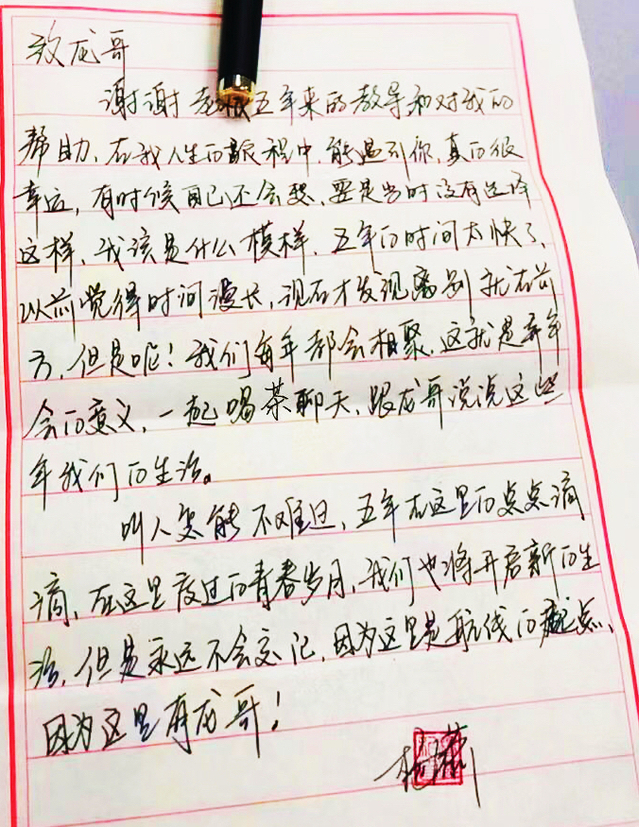 致龙哥
谢谢 五年来的教导和对我的
帮助,在我人生的旅程中,能遇到你,真的很
幸运,有时候自己还会想,要是当时没有选择
这样,我该是什么模样,五年的时间太快了,
以前觉得时间漫长,现在才发现离别就在前
方,但是呢!我们每年都会相聚,这就是新年
会的意义,一起喝茶聊天,跟龙哥说说这些
年我们的生活。
叫人怎能不难过,五年在这里的点点滴
滴,在这里度过的青春岁月,我们也将开启新的生
活,但是永远不会忘记,因为这里是航线的起点、
因为这里有龙哥!